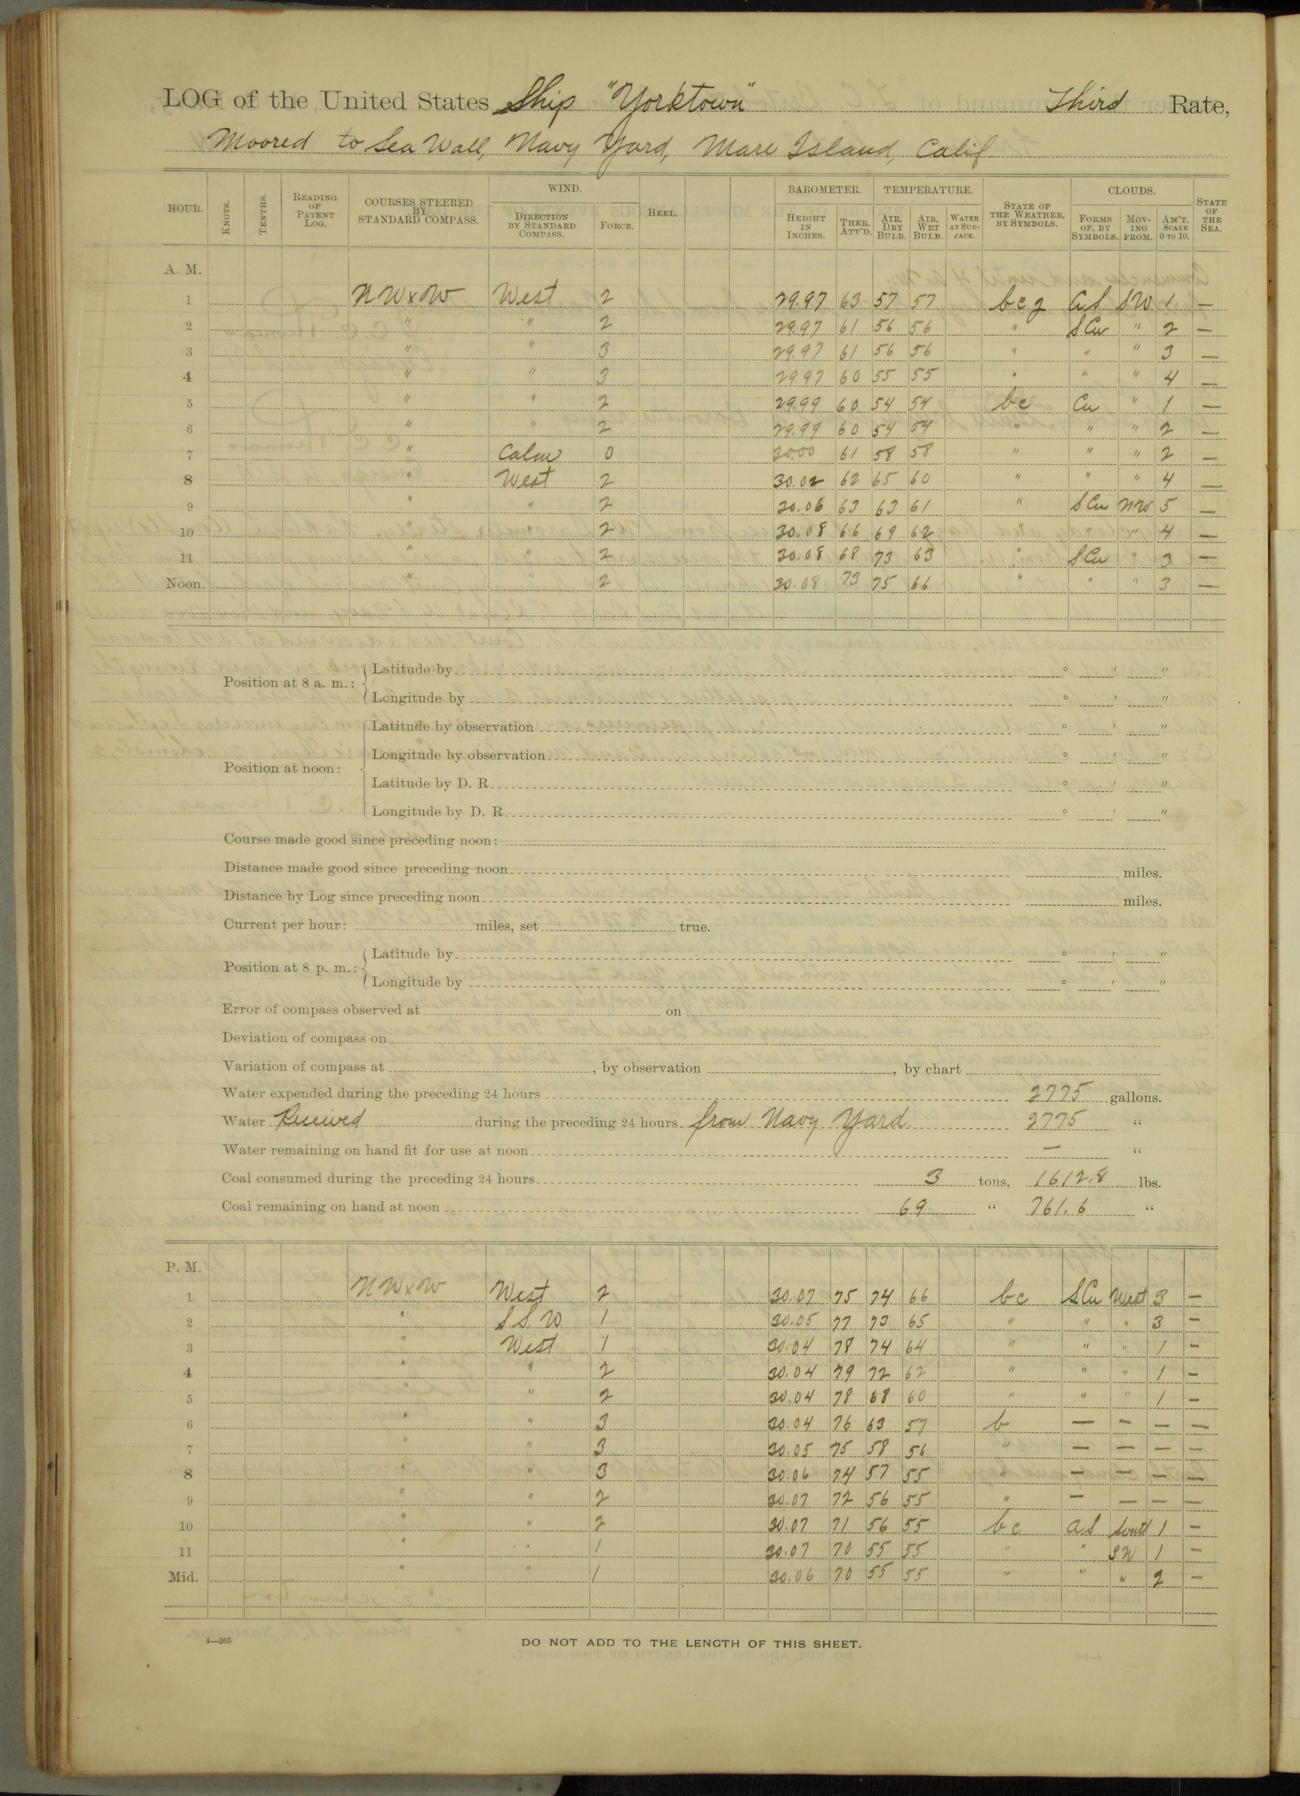 LOG of the United States Ship "Yorktown" Third Rate,
Moored to Sea Wall, Navy Yard, Mare Island, Calif
HOUR. KNOTS. TENTHS. READING OF PATENT LOG. COURSES STEERED BY STANDARD COMPASS. WIND. DIRECTION BY STANDARD COMPASS. FORCE. HEEL. BAROMETER. HEIGHT IN INCHES. THER. ATT'D. TEMPERATURE. AIR, DRY BULB. AIR, WET BULB. WATER AT SURFACE. STATE OF THE WEATHER, BY SYMBOLS. CLOUDS. FORMS OF, BY SYMBOLS. MOVING FROM. AM'T. SCALE 0 TO 10. STATE OF THE SEA.
A. M.
1 NWxW West 2 29.97 63 57 57 bcz aS SW 1 —
2 " " 2 29.97 61 56 56 " SCu " 2 —
3 " " 3 29.97 61 56 56 " " " 3 —
4 " " 3 29.97 60 55 55 " " " 4 —
5 " " 2 29.99 60 54 54 bc Cu " 1 —
6 " " 2 29.99 60 54 54 " " " 2 —
7 " Calm 0 30.00 61 58 58 " " " 2 —
8 " West 2 30.02 62 65 60 " " " 4 —
9 " " 2 30.06 63 63 61 " SCu NW 5 —
10 " " 2 30.08 66 69 62 " " " 4 —
11 " " 2 30.08 68 73 63 " SCu " 3 —
Noon. " " 2 30.08 73 75 66 " " " 3 —
Position at 8 a. m.: Latitude by ° ' "
Longitude by ° ' "
Position at noon: Latitude by observation ° ' "
Longitude by observation ° ' "
Latitude by D. R. ° ' "
Longitude by D. R. ° ' "
Course made good since preceding noon:
Distance made good since preceding noon miles.
Distance by Log since preceding noon miles.
Current per hour: miles, set true.
Position at 8 p. m.: Latitude by ° ' "
Longitude by ° ' "
Error of compass observed at on
Deviation of compass on
Variation of compass at , by observation , by chart
Water expended during the preceding 24 hours 2775 gallons.
Water Received during the preceding 24 hours from Navy Yard 2775 "
Water remaining on hand fit for use at noon — "
Coal consumed during the preceding 24 hours 3 tons, 1612.8 lbs.
Coal remaining on hand at noon 69 " 761.6 "
P. M.
1 NWxW West 2 30.07 75 74 66 bc SCu West 3 —
2 " S.S.W 1 30.05 77 73 65 " " " 3 —
3 " West 1 30.04 78 74 64 " " " 1 —
4 " " 2 30.04 79 72 62 " " " 1 —
5 " " 2 30.04 78 68 60 " " " 1 —
6 " " 3 30.04 76 63 57 b — — — —
7 " " 3 30.05 75 58 56 " — — — —
8 " " 3 30.06 74 57 55 " — — — —
9 " " 2 30.07 72 56 55 " — — — —
10 " " 2 30.07 71 56 55 bc aS 1 —
11 " " 1 30.07 70 55 55 " " SW 1 —
Mid. " " 1 30.06 70 55 55 " " " 2 —
4—265
DO NOT ADD TO THE LENGTH OF THIS SHEET.